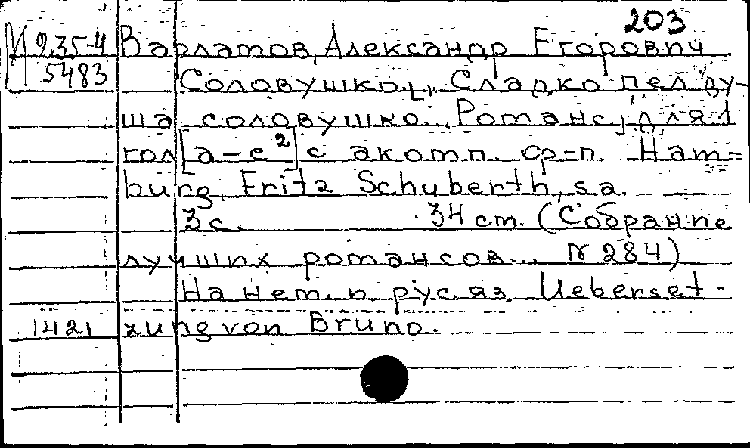 203
М 235-4 Варламов, Александр Егорович
5483 Соловушко. [„Сладко пел ду-
ша соловушко..." Романс] для 1
гол [a-e²] с акомп. ф-п. Ham=
burg, Fritz Schuberth, s.a.
3 с. 34 cm. (Собрание
лучших романсов... N 284)
На нем. и рус. яз. Ueberset-
1421 zung von Bruno.